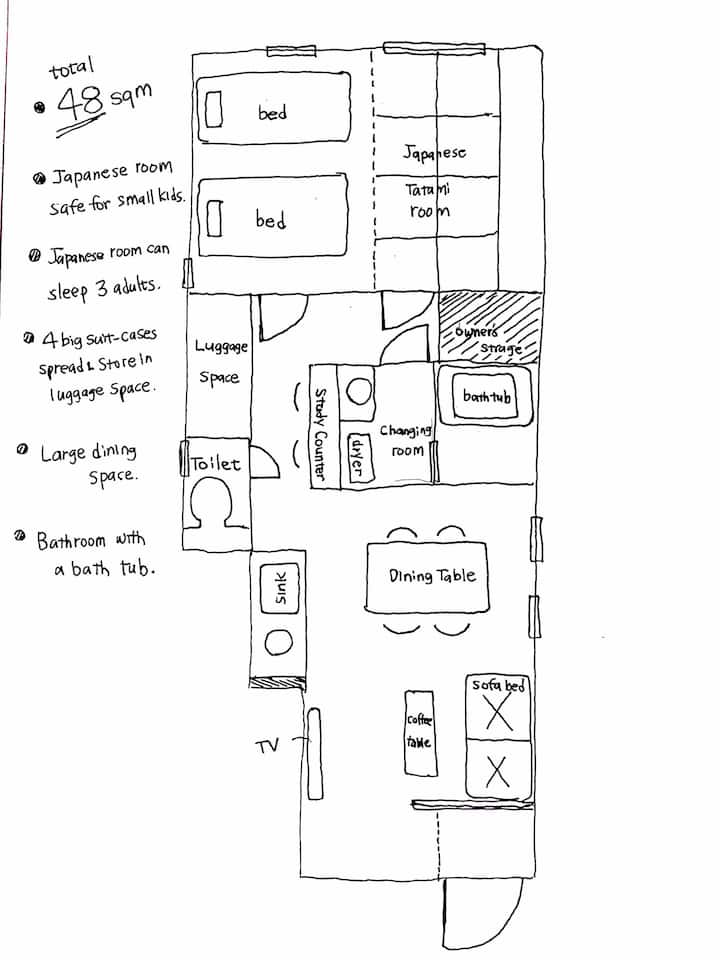 total
48 sqm
Japanese room
safe for small kids.
Japanese room can
sleep 3 adults.
4 big suit-cases
spread & Store in
luggage Space.
Large dining
space.
Bathroom with
a bath tub.
bed
bed
Japanese
Tatami
room
Luggage
Space
owner's
strage
bathtub
Study Counter
Changing
room
dryer
Toilet
Sink
Dining Table
Sofa bed
Coffee
table
TV